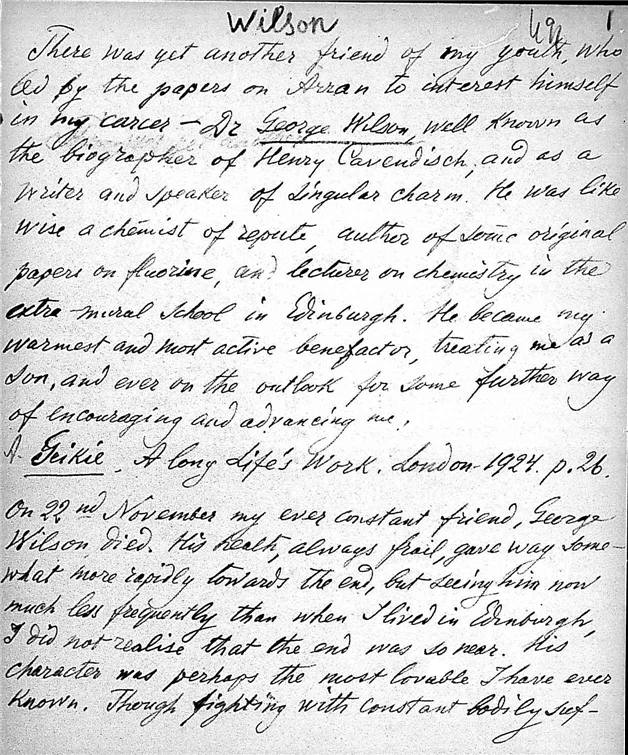 Wilson
1
There was yet another friend of my youth, who
led by the papers on Arran to interest himself
in my career – Dr George Wilson, well known as
the biographer of Henry Cavendisch, and as a
writer and speaker of singular charm. He was like
wise a chemist of repute, author of some original
papers on fluorine, and lecturer on chemistry in the
extra-mural school in Edinburgh. He became my
warmest and most active benefactor, treating me as a
son, and ever on the outlook for some further way
of encouraging and advancing me.
A. Geikie. A long Life's Work. London 1924. p. 26.
On 22nd November my ever constant friend, George
Wilson, died. His health, always frail, gave way some-
what more rapidly towards the end, but seeing him now
much less frequently than when I lived in Edinburgh,
I did not realise that the end was so near. His
character was perhaps the most lovable I have ever
known. Though fighting with constant bodily suf-